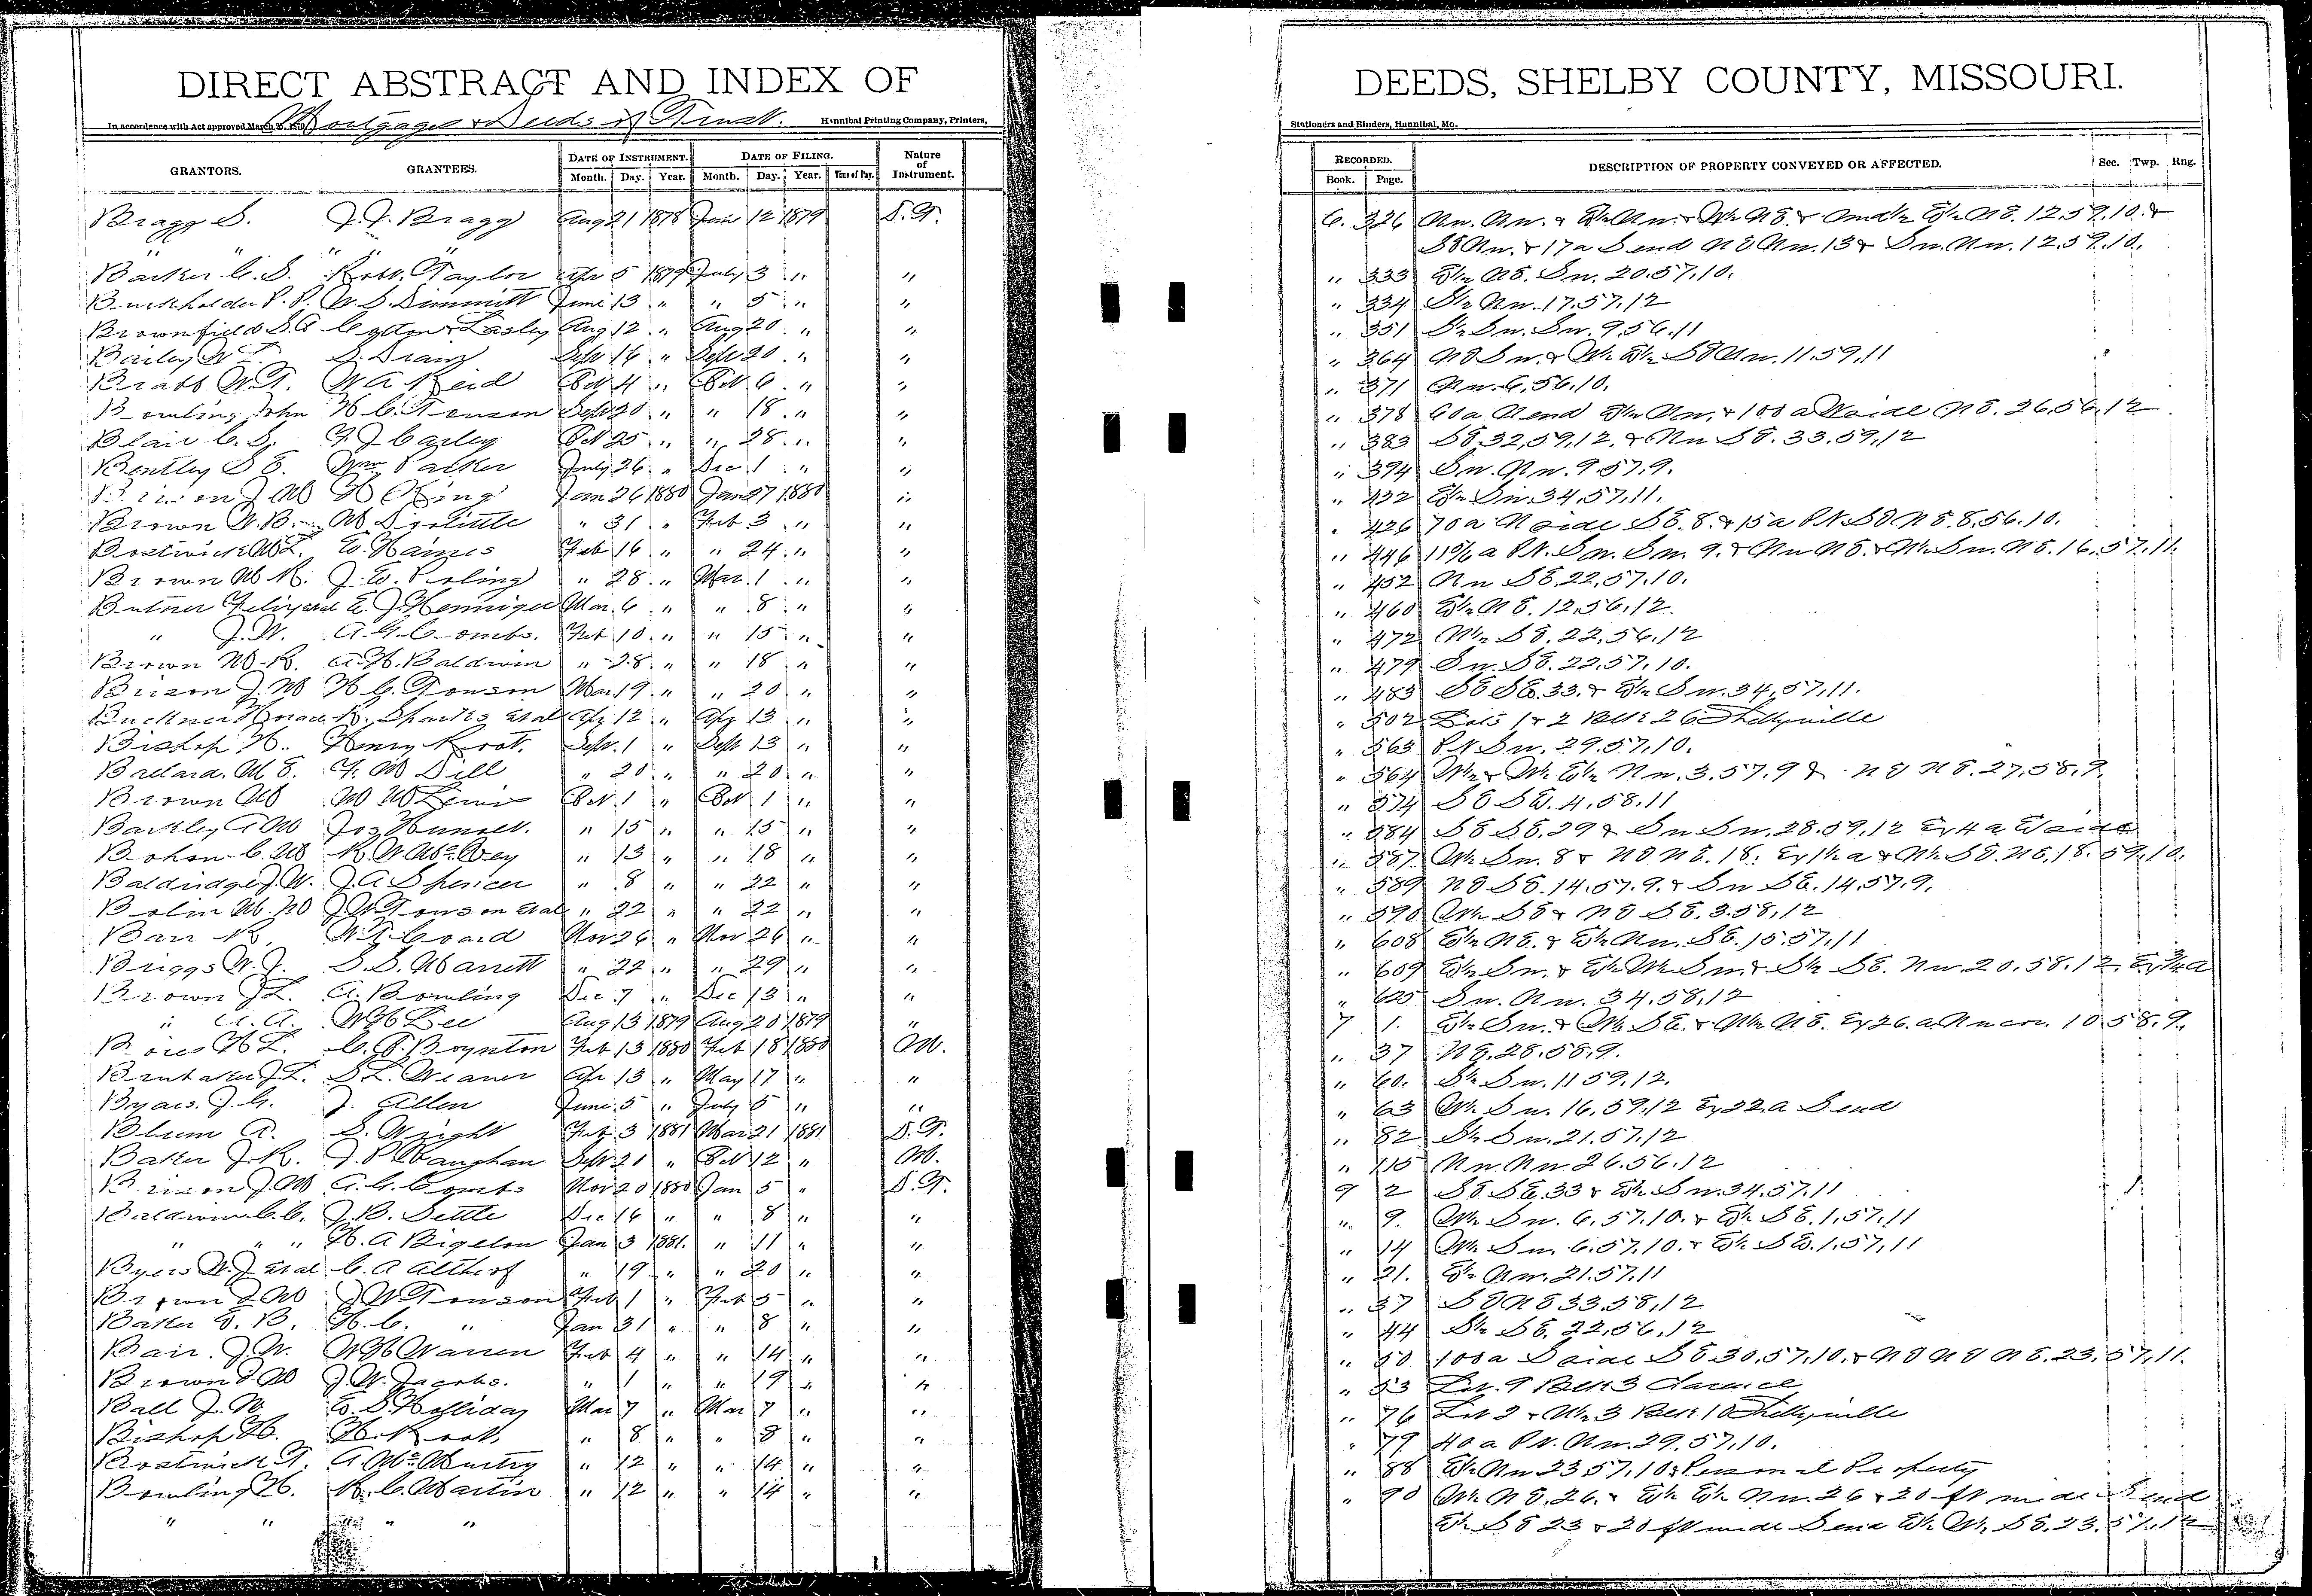 DIRECT ABSTRACT AND INDEX OF DEEDS, SHELBY COUNTY, MISSOURI.
Mortgages & Deeds of Trust.
In accordance with Act approved March Hannibal Printing Company, Printers, Stationers and Binders, Hannibal, Mo.
GRANTORS. GRANTEES. DATE OF INSTRUMENT. DATE OF FILING. Nature of Instrument. RECORDED. DESCRIPTION OF PROPERTY CONVEYED OR AFFECTED. Sec. Twp. Rng.
Month. Day. Year. Month. Day. Year. Time of Day. Book. Page.
Bragg S. J. J. Bragg Aug 21 1878 June 12 1879 D.T. 6. 326 Nw. Nw. & E½ Nw. & W½ NE. & E½ NE. 12.59.10. &
" " " " " SE Nw. & 17a Send NE Nw. 13 & Sw. Nw. 12.59.10.
Barker C. S. Robt. Taylor Apr 5 1879 July 3 " " " 333 E½ NE. Sw. 20.57.10.
Burkholder P. P. W. S. Dimmitt June 13 " " 5 " " " 334 S½ Nw. 17.57.12
Brownfield S. A Cotton & Lasley Aug 12 " Aug 20 " " " 351 S½ Sw. Sw. 9.56.11
Bailey W T. S. Dranz Sept 16 " Sept 20 " " " 364 NE Sw. & W½ E½ SE Nw. 11.59.11
Brabb W. T. W A Reid Oct 4 " Oct 6 " " " 371 Nw. 6.56.10.
Bowling John H C. Towson Sept 20 " " 18 " " " 378 60a Nend E½ Nw. & 100a W side NE. 26.56.12
Blair C. S. F J Carley Oct 25 " " 28 " " " 383 SE 32,59,12. & Nw SE. 33.59.12
Bentley S E. Wm Parker July 26 " Dec 1 " " " 394 Sw. Nw. 9.57.9.
Brixon J. M H King Jan 26 1880 Jan 27 1880 " " 422 E½ Sw. 34.57.11.
Brown W. B. M Doolittle " 31 " Feb 3 " " " 426 70a N side SE. 8. & 15a Pt SE NE. 8.56.10.
Bostwick M L. E. Haines Feb 16 " " 24 " " " 446 a Pt. Sw. Sw. 9. & Nw NE. & W½ Sw. NE. 16.57.11.
Brown M R. J. E. Poling " 28 " Mar 1 " " " 452 Nw SE. 22.57.10.
Butner Felix et al E. J. Henniger Mar 6 " " 8 " " " 460 E½ NE. 12.56.12
" J. W. A. G. Combs. Feb 10 " " 15 " " " 472 W½ SE. 22.56.12
Brown M. R. A. H. Baldwin " 28 " " 18 " " " 479 Sw. SE. 22.57.10.
Brixon J. M H C. Towson Mar 19 " " 20 " " " 483 SE SE. 33. & E½ Sw. 34.57.11.
Buckner Horace R. Sparks et al Apr 12 " Apr 13 " " " 502 Lots 1 & 2 Blk 26 Shelbyville
Bishop H. Henry Root. Sept 1 " Sept 13 " " " 563 Pt Sw. 29.57.10.
Ballard. M E. F. M Dill " 20 " " 20 " " " 564 W½ & W½ E½ Nw. 3.57.9 & NE NE. 27.58.9.
Brown M M M Lewis Oct 1 " Oct 1 " " " 574 SE SE. 4.58.11
Barkley A M Jos Hunolt. " 15 " " 15 " " " 584 SE SE. 29 & Sw Sw. 28.59.12 Ex 4a E side
Bohon C. M R. W McVey " 13 " " 18 " " " 587 W½ Sw. 8 & NE NE. 18. Ex 1½a & W½ SE. NE. 18. 59.10.
Baldridge J. W. J. A Spencer " 8 " " 22 " " " 589 NE SE. 14.57.9. & Sw SE. 14.57.9.
Bolin M. M J. W Towson et al " 22 " " 22 " " " 590 W½ SE & NE SE. 3.58.12
Barr R W. T. Coard Nov 26 " Nov 26 " " " 608 E½ NE. & E½ Nw. SE. 15.57.11
Briggs W. J. S. S. Marrett " 22 " " 29 " " " 609 E½ Sw. & E½ W½ Sw. & S½ SE. Nw. 20.58.12. Ex ¾a
Brown J L. A. Bowling Dec 7 " Dec 13 " " " 625 Sw. Nw. 34.58.12
" A. A. W H Lee Aug 13 1879 Aug 20 1879 " 7 1. E½ Sw. & W½ SE. & W½ NE. Ex 26.a Nw cor. 10 58.9.
Boies H L. C. A. Boynton Feb 13 1880 Feb 18 1880 M. " 37 NE. 28.58.9.
Brubaker J. L. S L. Weaner Apr 13 " May 17 " " " 60. S½ Sw. 11 59.12.
Byars. J. G. J. Allen June 5 " July 5 " " " 63 W½ Sw. 16.59.12 Ex 22a Send
Blum A. S. Wright Feb 3 1881 Mar 21 1881 D.T. " 82 S½ Sw. 21.57.12
Baker J. R. J. P. Vaughan Sept 21 " Oct 12 " M. " 115 Nw. Nw 26.56.12
Brixon J. M A. G. Combs Nov 20 1880 Jan 5 " D.T. 9 2 SE SE. 33 & E½ Sw. 34.57.11
Baldwin C. C. J. B. Settle Dec 16 " " 8 " " " 9. W½ Sw. 6.57.10. & E½ SE. 1.57.11
" " " H. A Bigelow Jan 3 1881. " 11 " " " 14 W½ Sw 6.57.10. & E½ SE. 1.57.11
Byers W. J et al C. A Althof " 19 " " 20 " " " 21. E½ Nw. 21.57.11
Brown J M J W Towson Feb 1 " Feb 5 " " " 37 SE NE 33.58.12
Baker E. B. H. C. " Jan 31 " " 8 " " " 44 S½ SE. 22.56.12
Bair. J. W. W H Warren Feb 4 " " 14 " " " 50 100a S side SE. 30.57.10. & NE NE NE. 23.57.11.
Brown J M J. W. Jacobs. " 1 " " 19 " " " 53 Lot. 9 Blk 3 Clarence
Ball J. M E. S. Holliday Mar 7 " Mar 7 " " " 76 Lot 2 & W½ 3 Blk 10 Shelbyville
Bishop H. H. Root. " 8 " " 8 " " " 79 40a Pt. Nw. 29.57.10.
Bostwick T. A. McMurtry " 12 " " 14 " " " 88 E½ Nw 23 57.10 & Personal Property
Bowling H. R. C. Martin " 12 " " 14 " " " 90 W½ NE. 26. & E½ E½ Nw. 26 & 20 ft wide Send
" " " " E½ SE 23 & 20 ft wide Send E½ W½ SE. 23.57.12